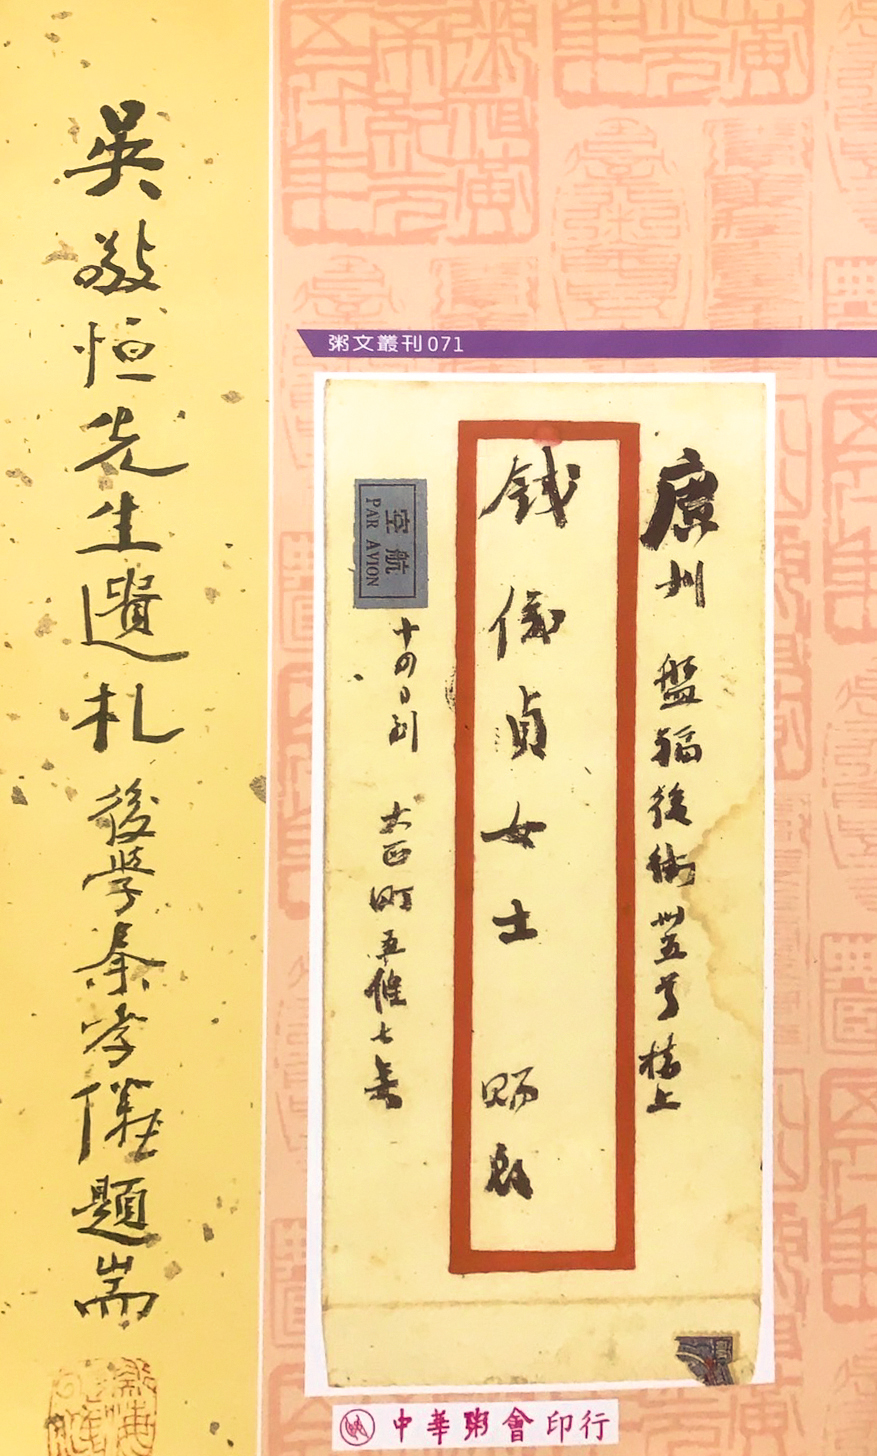 吳敬恒先生遺札
後學秦孝儀題耑
粥文叢刊071
廣州 盤福後街卅五号樓上
錢儀貞女士 賜啟
空航
PAR AVION
十四日到
大西町
中華粥會印行